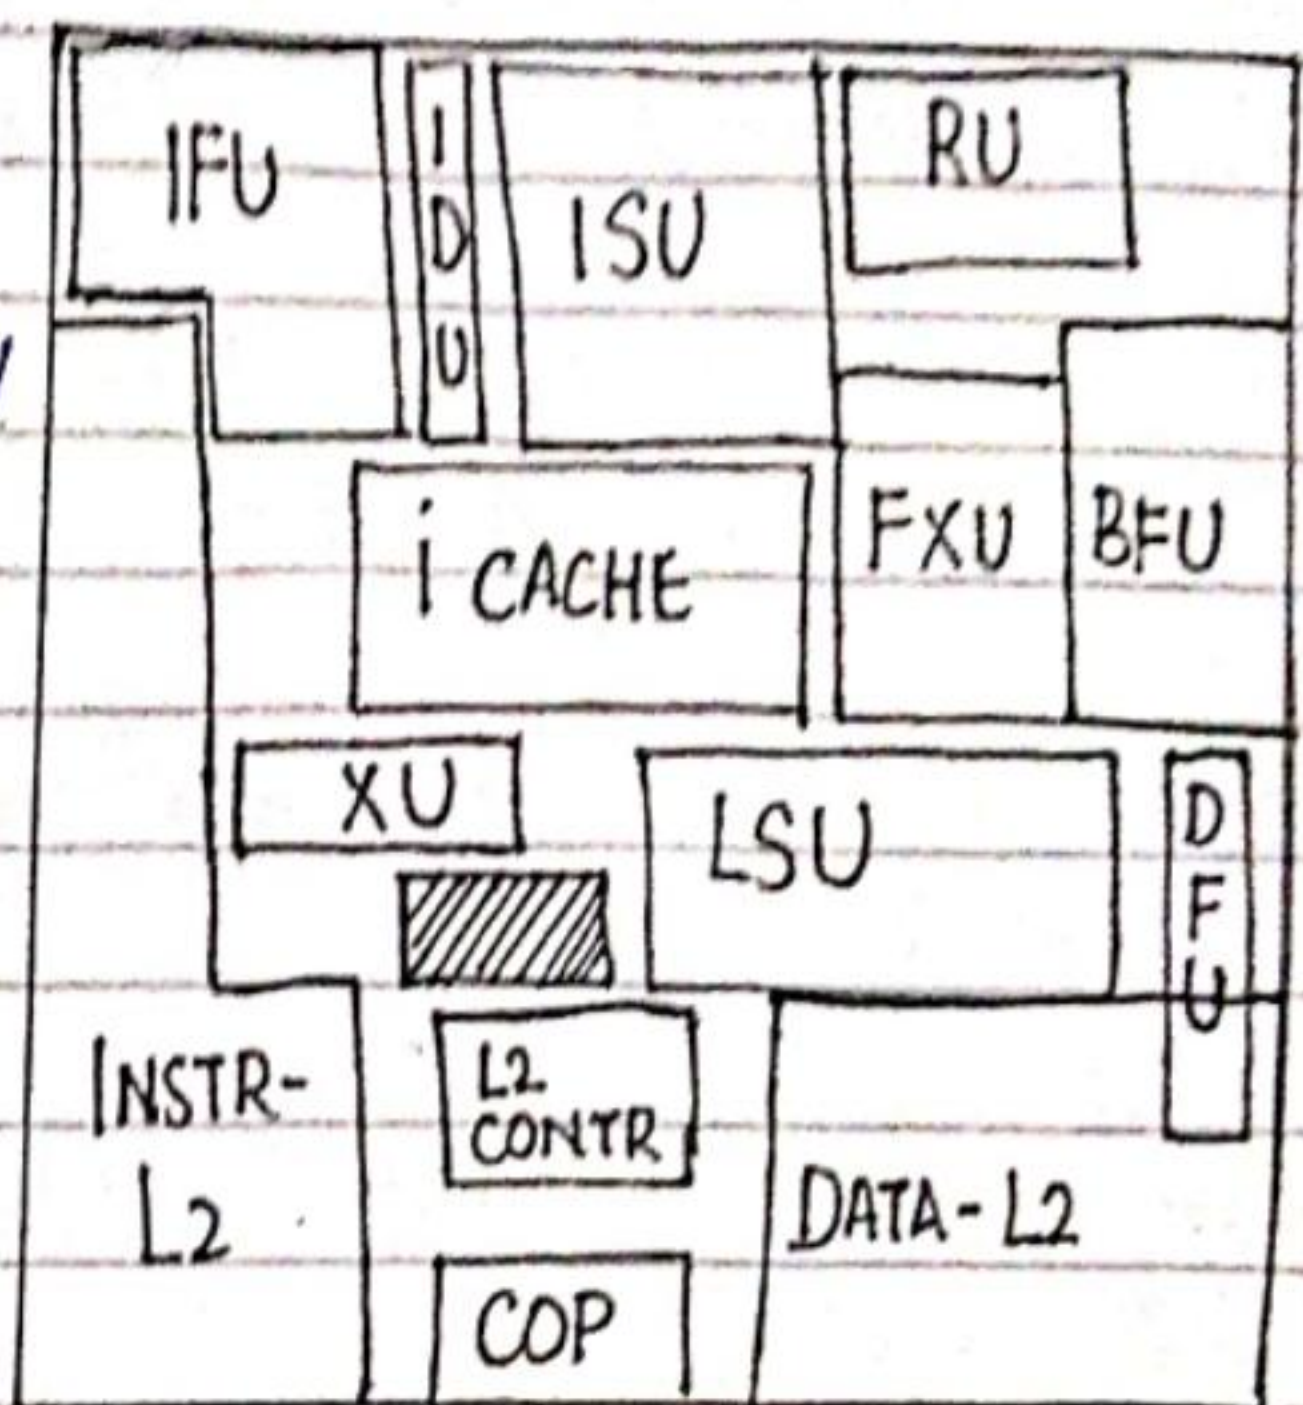 IFU
IDU
ISU
RU
i CACHE
FXU
BFU
XU
LSU
DFU
INSTR-
L2
L2
CONTR
DATA-L2
COP